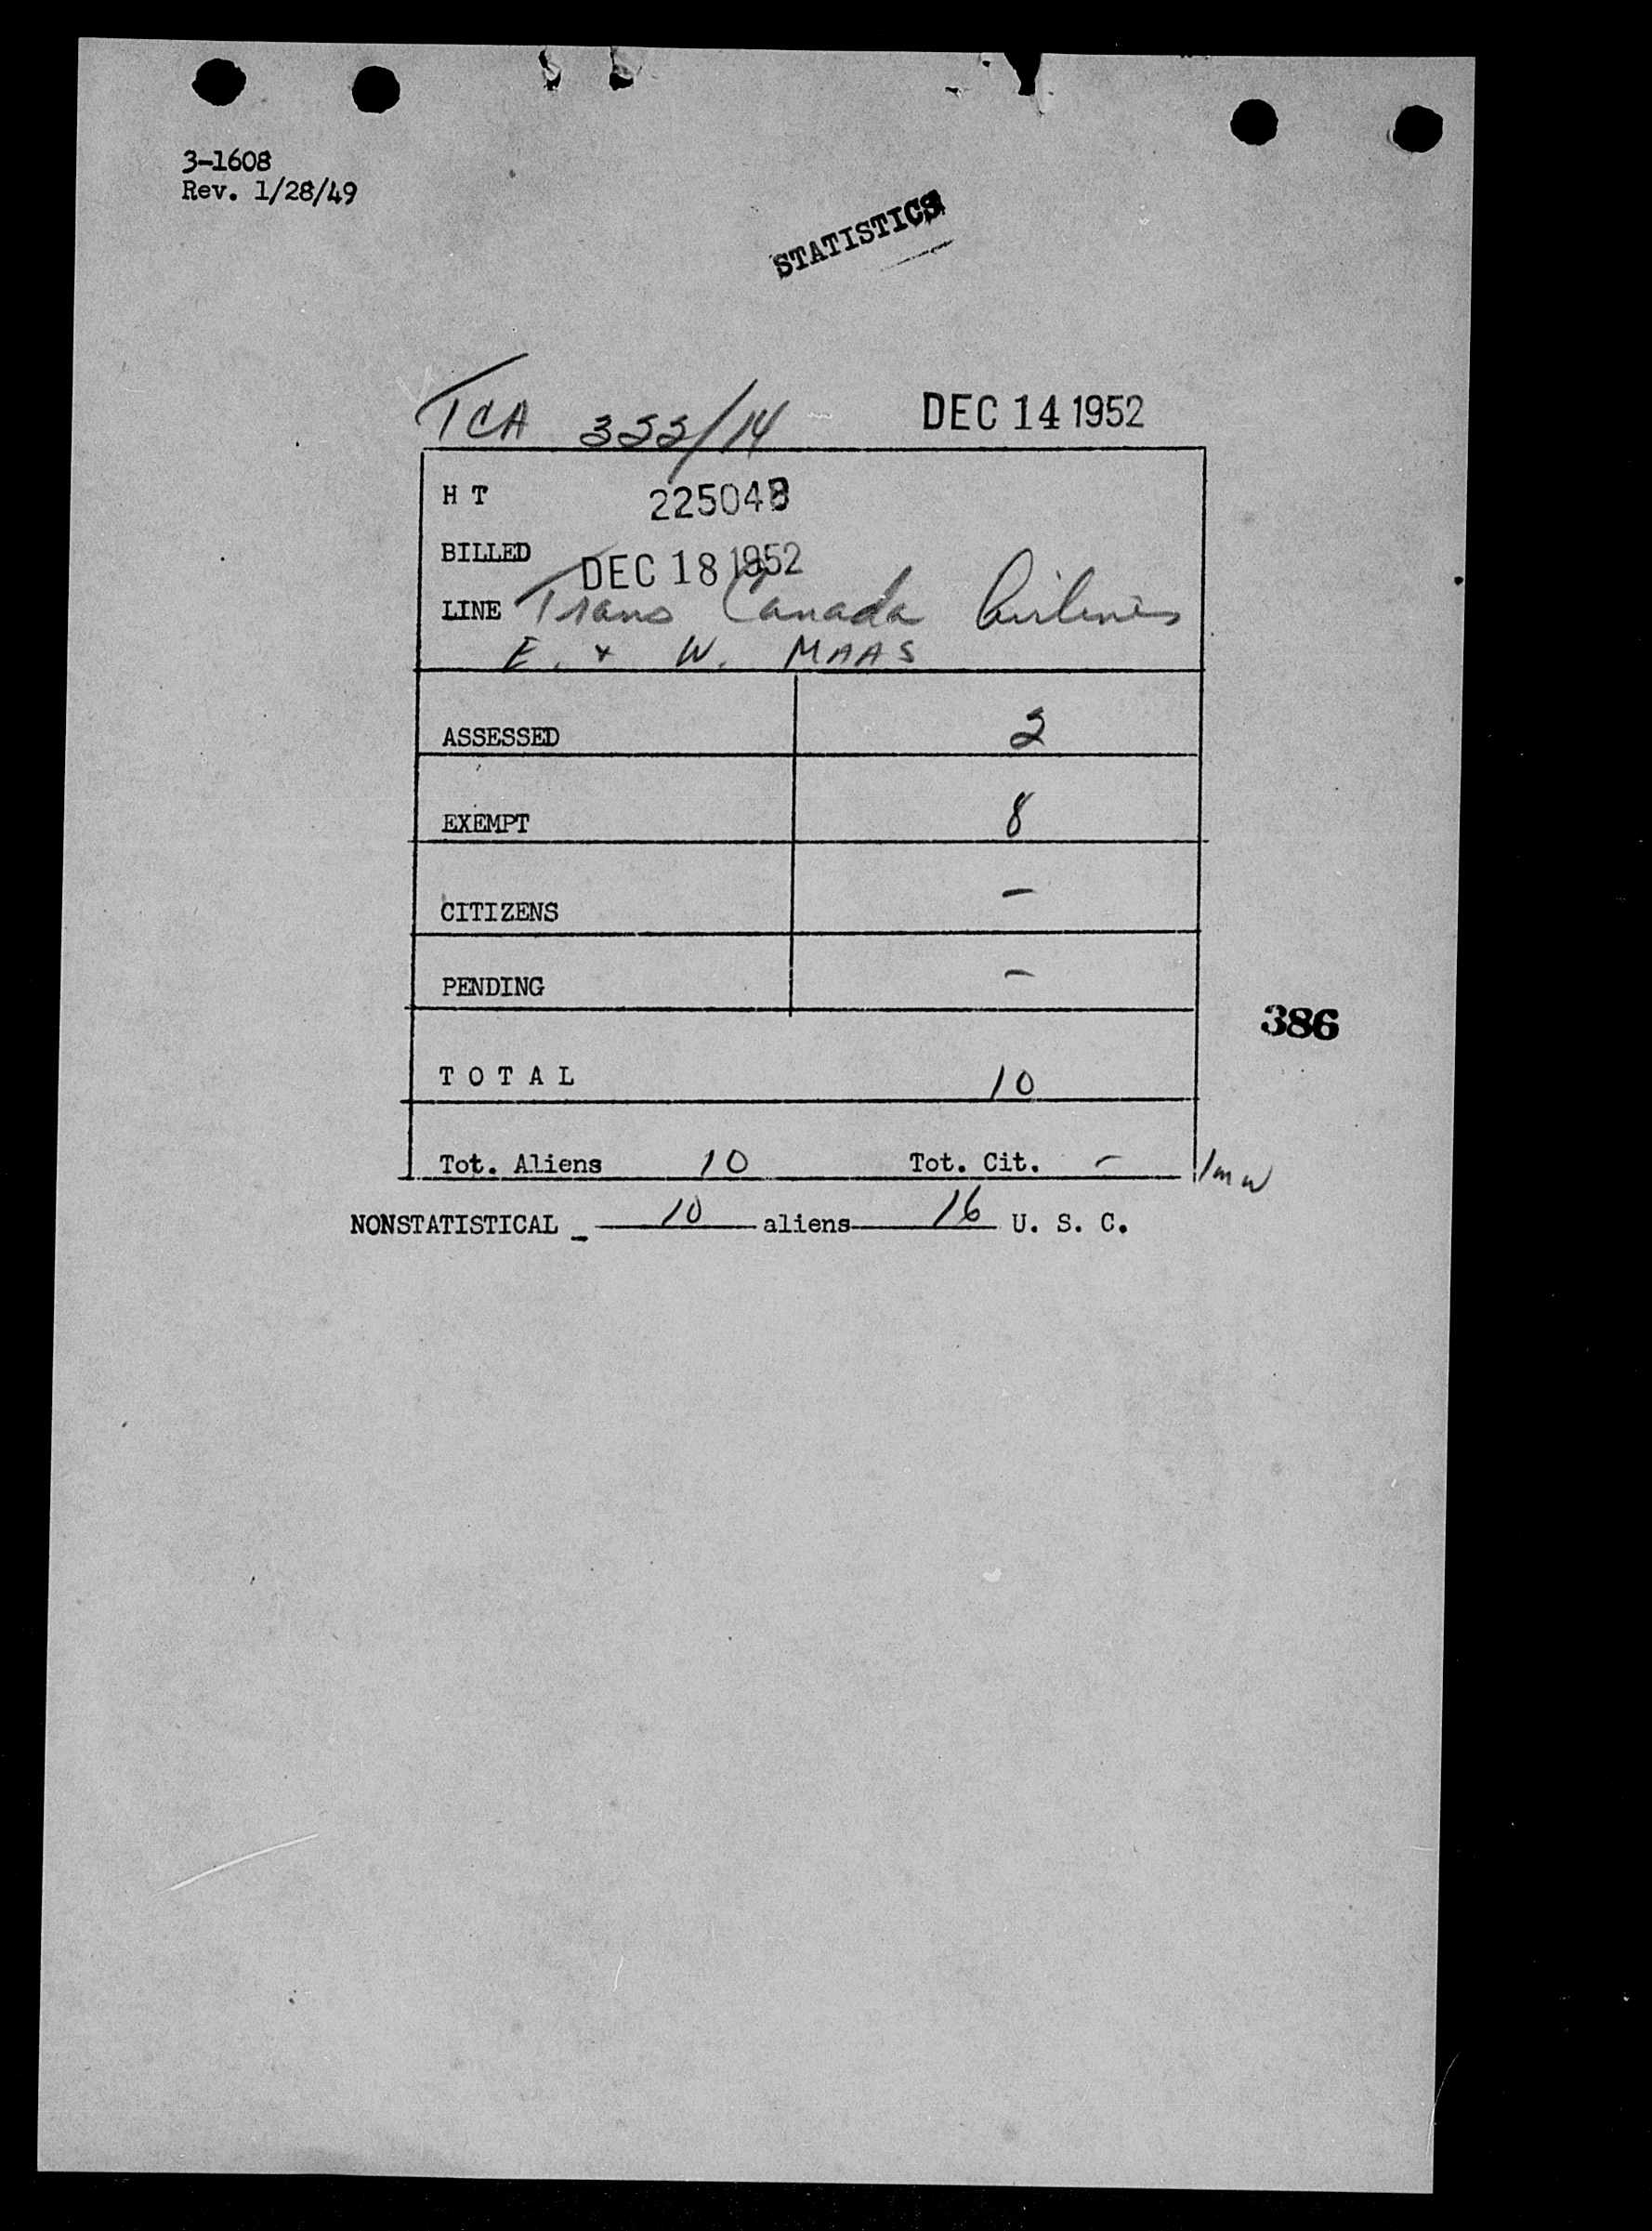 3-1608
Rev. 1/28/49
STATISTICS
TCA 322/14 DEC 14 1952
H T 225048
BILLED DEC 18 1952
LINE Trans Canada Airlines
E. & W. MAAS
ASSESSED 2
EXEMPT 8
CITIZENS -
PENDING -
386
T O T A L 10
Tot. Aliens 10 Tot. Cit. -
NONSTATISTICAL - 10 aliens 16 U. S. C.